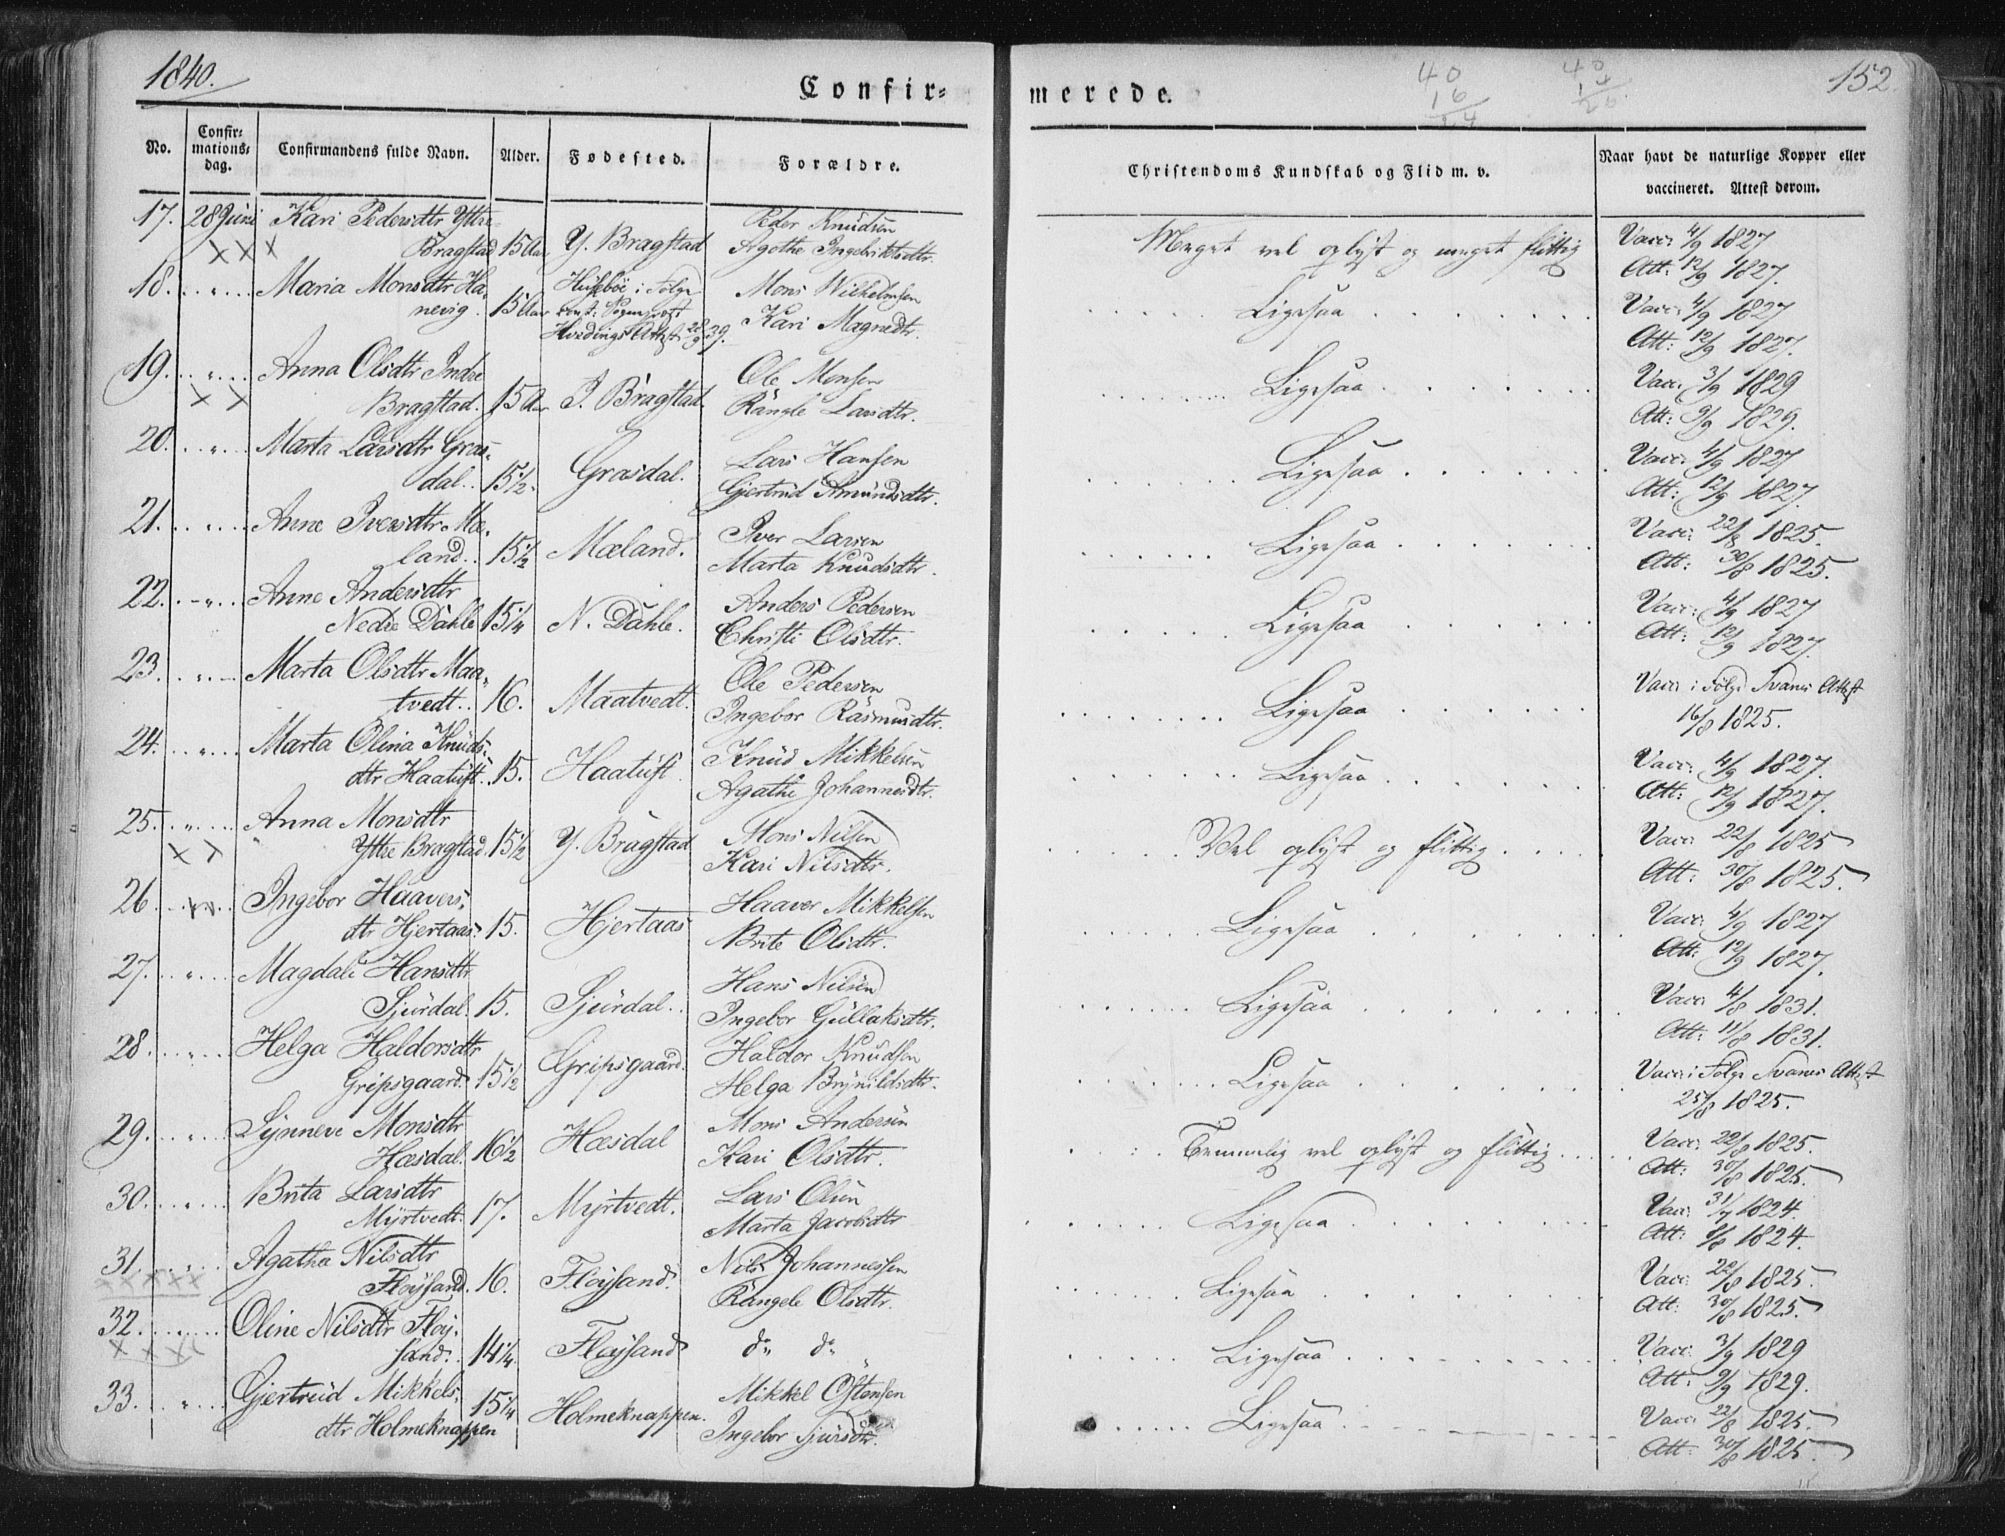 1840.
152.
Confir=
merede.
40
16
24
No.
Confir=
mations=
dag.
Confirmandens fulde Navn.
Alder.
Fødested.
Forældre.
Christendoms Kundskab og Flid m. v.
Naar havt de naturlige Kopper eller
vaccineret. Attest derom.
17. 28 Juni Kari Pedersdtr Yttre Peder Knudsen Vacc: 4/9 1827
xxx Bragstad 15 Aar Y. Bragstad Agothe Ingebriktsdtr. Meget vel oplyst og meget flittig Att: 12/9 1827.
18. " Maria Monsdtr Ha= Huseböe i Følge Mons Wilhelmsen Ligesaa Vacc: 4/9 1827
nevig. 15 Aar const: Sogneprest Kari Magnedtr. Att: 12/9 1827.
Hvedings Attest 28/9 39.
19. " Anna Olsdtr Indre Ole Monsen Ligesaa Vacc: 3/9 1829
x x Bragstad. 15 Aar I. Bragstad. Rangle Larsdtr. Att: 9/9 1829.
20. " Marta Larsdtr Gras= Lars Hansen Ligesaa Vacc: 4/9 1827
dal. 15 1/2 Grasdal. Gjertrud Amundsdtr. Att: 12/9 1827.
21. " Anne Iversdtr Mæ= Iver Larsen Ligesaa Vacc: 22/8 1825.
land. 15 1/2 Mæland. Marta Knudsdtr. Att: 30/8 1825.
22. " Anne Andersdtr Anders Pedersen Ligesaa Vacc: 4/9 1827
Nedre Dahle 15 1/4 N. Dahle. Christi Olsdtr. Att: 12/9 1827.
23. " Marta Olsdtr Maa= Ole Pedersen Ligesaa Vacc: i Følge Svanes Attest
tvedt. 16. Maatvedt. Ingebor Rasmusdtr. 16/8 1825.
24. " Marta Olina Knuds= Knud Mikkelsen Ligesaa Vacc: 4/9 1827.
dtr Haatuft. 15. Haatuft. Agathe Johannesdtr. Att: 12/9 1827.
25. " Anna Monsdtr Mons Nilsen Vel oplyst og flittig Vacc: 22/8 1825
x x Yttre Bragstad 15 1/2 Y. Bragstad Kari Nilsdtr. Att: 30/8 1825.
26. " Ingebor Haavers= Haaver Mikkelsen Ligesaa Vacc: 4/9 1827
dtr Hjertaas. 15. Hjertaas Brite Olsdtr. Att: 12/9 1827.
27. " Magdali Hansdtr Hans Nilsen Ligesaa Vacc: 4/8 1831.
Sjurdal. 15. Sjurdal. Ingebor Gullaksdtr. Att: 11/8 1831.
28. " Helga Haldorsdtr Haldor Knudsen Ligesaa Vacc: i Følge Svanes Attest
Gripsgaard. 15 1/2 Gripsgaard. Helga Brynildsdtr. 25/8 1825.
29. " Synneve Monsdtr Mons Andersen Temmelig vel oplyst og flittig Vacc: 22/8 1825.
Hæsdal. 16 1/2 Hæsdal Kari Olsdtr. Att: 30/8 1825.
30. " Brita Larsdtr Lars Olsen Ligesaa Vacc: 31/7 1824.
Myrtvedt. 17. Myrtvedt. Marta Jacobsdtr Att: 8/8 1824.
31. " Agatha Nilsdtr Nils Johannessen Ligesaa Vacc: 22/8 1825.
xxxxx Fløysand. 16. Fløysand. Rangele Olsdtr. Att: 30/8 1825.
32. " Oline Nilsdtr Fløy= Ligesaa Vacc: 3/9 1829
xxxx sand. 14 1/4 Fløysand do do Att: 9/9 1829.
33. " Gjertrud Mikkels= Mikkel Østensen Ligesaa Vacc: 22/8 1825.
dtr Holmeknappen 15 1/4 Holmeknappen. Ingebor Sjursdtr. Att: 30/8 1825.